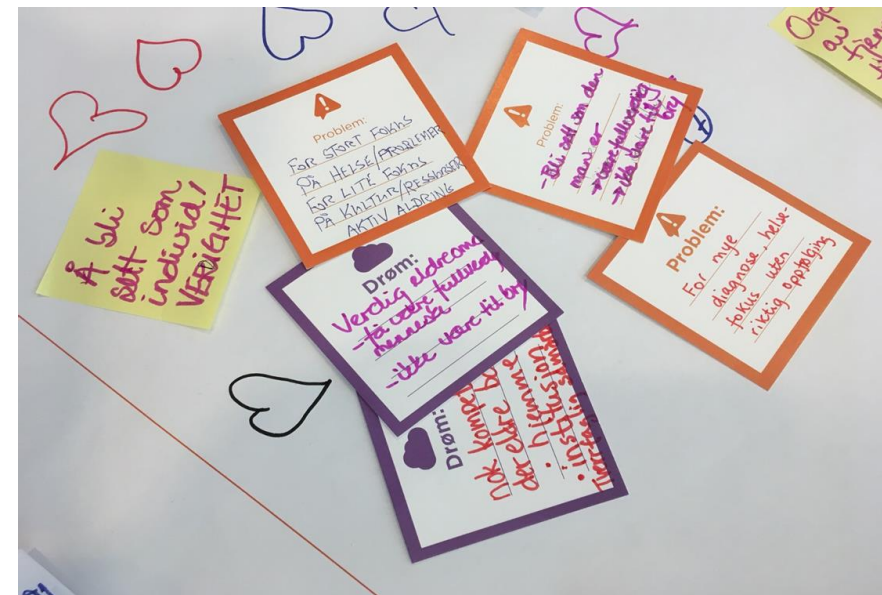 Å bli
sett som
individ/
VERDIGHET
Problem:
FOR STORT FOKUS
PÅ HELSE/PROBLEMER
FOR LITE FOKUS
PÅ KULTUR/RESSURSER
AKTIV ALDRING
Problem:
-Bli sett som den
man er
bry
Problem:
For mye
diagnose, helse-
fokus uten
riktig oppfølging
Drøm:
Verdig eldreoms
-få være fullverdig
menneske
-ikke være til bry
Drøm:
nok kompe
der eldre b
• hjemme
• institusjon
av